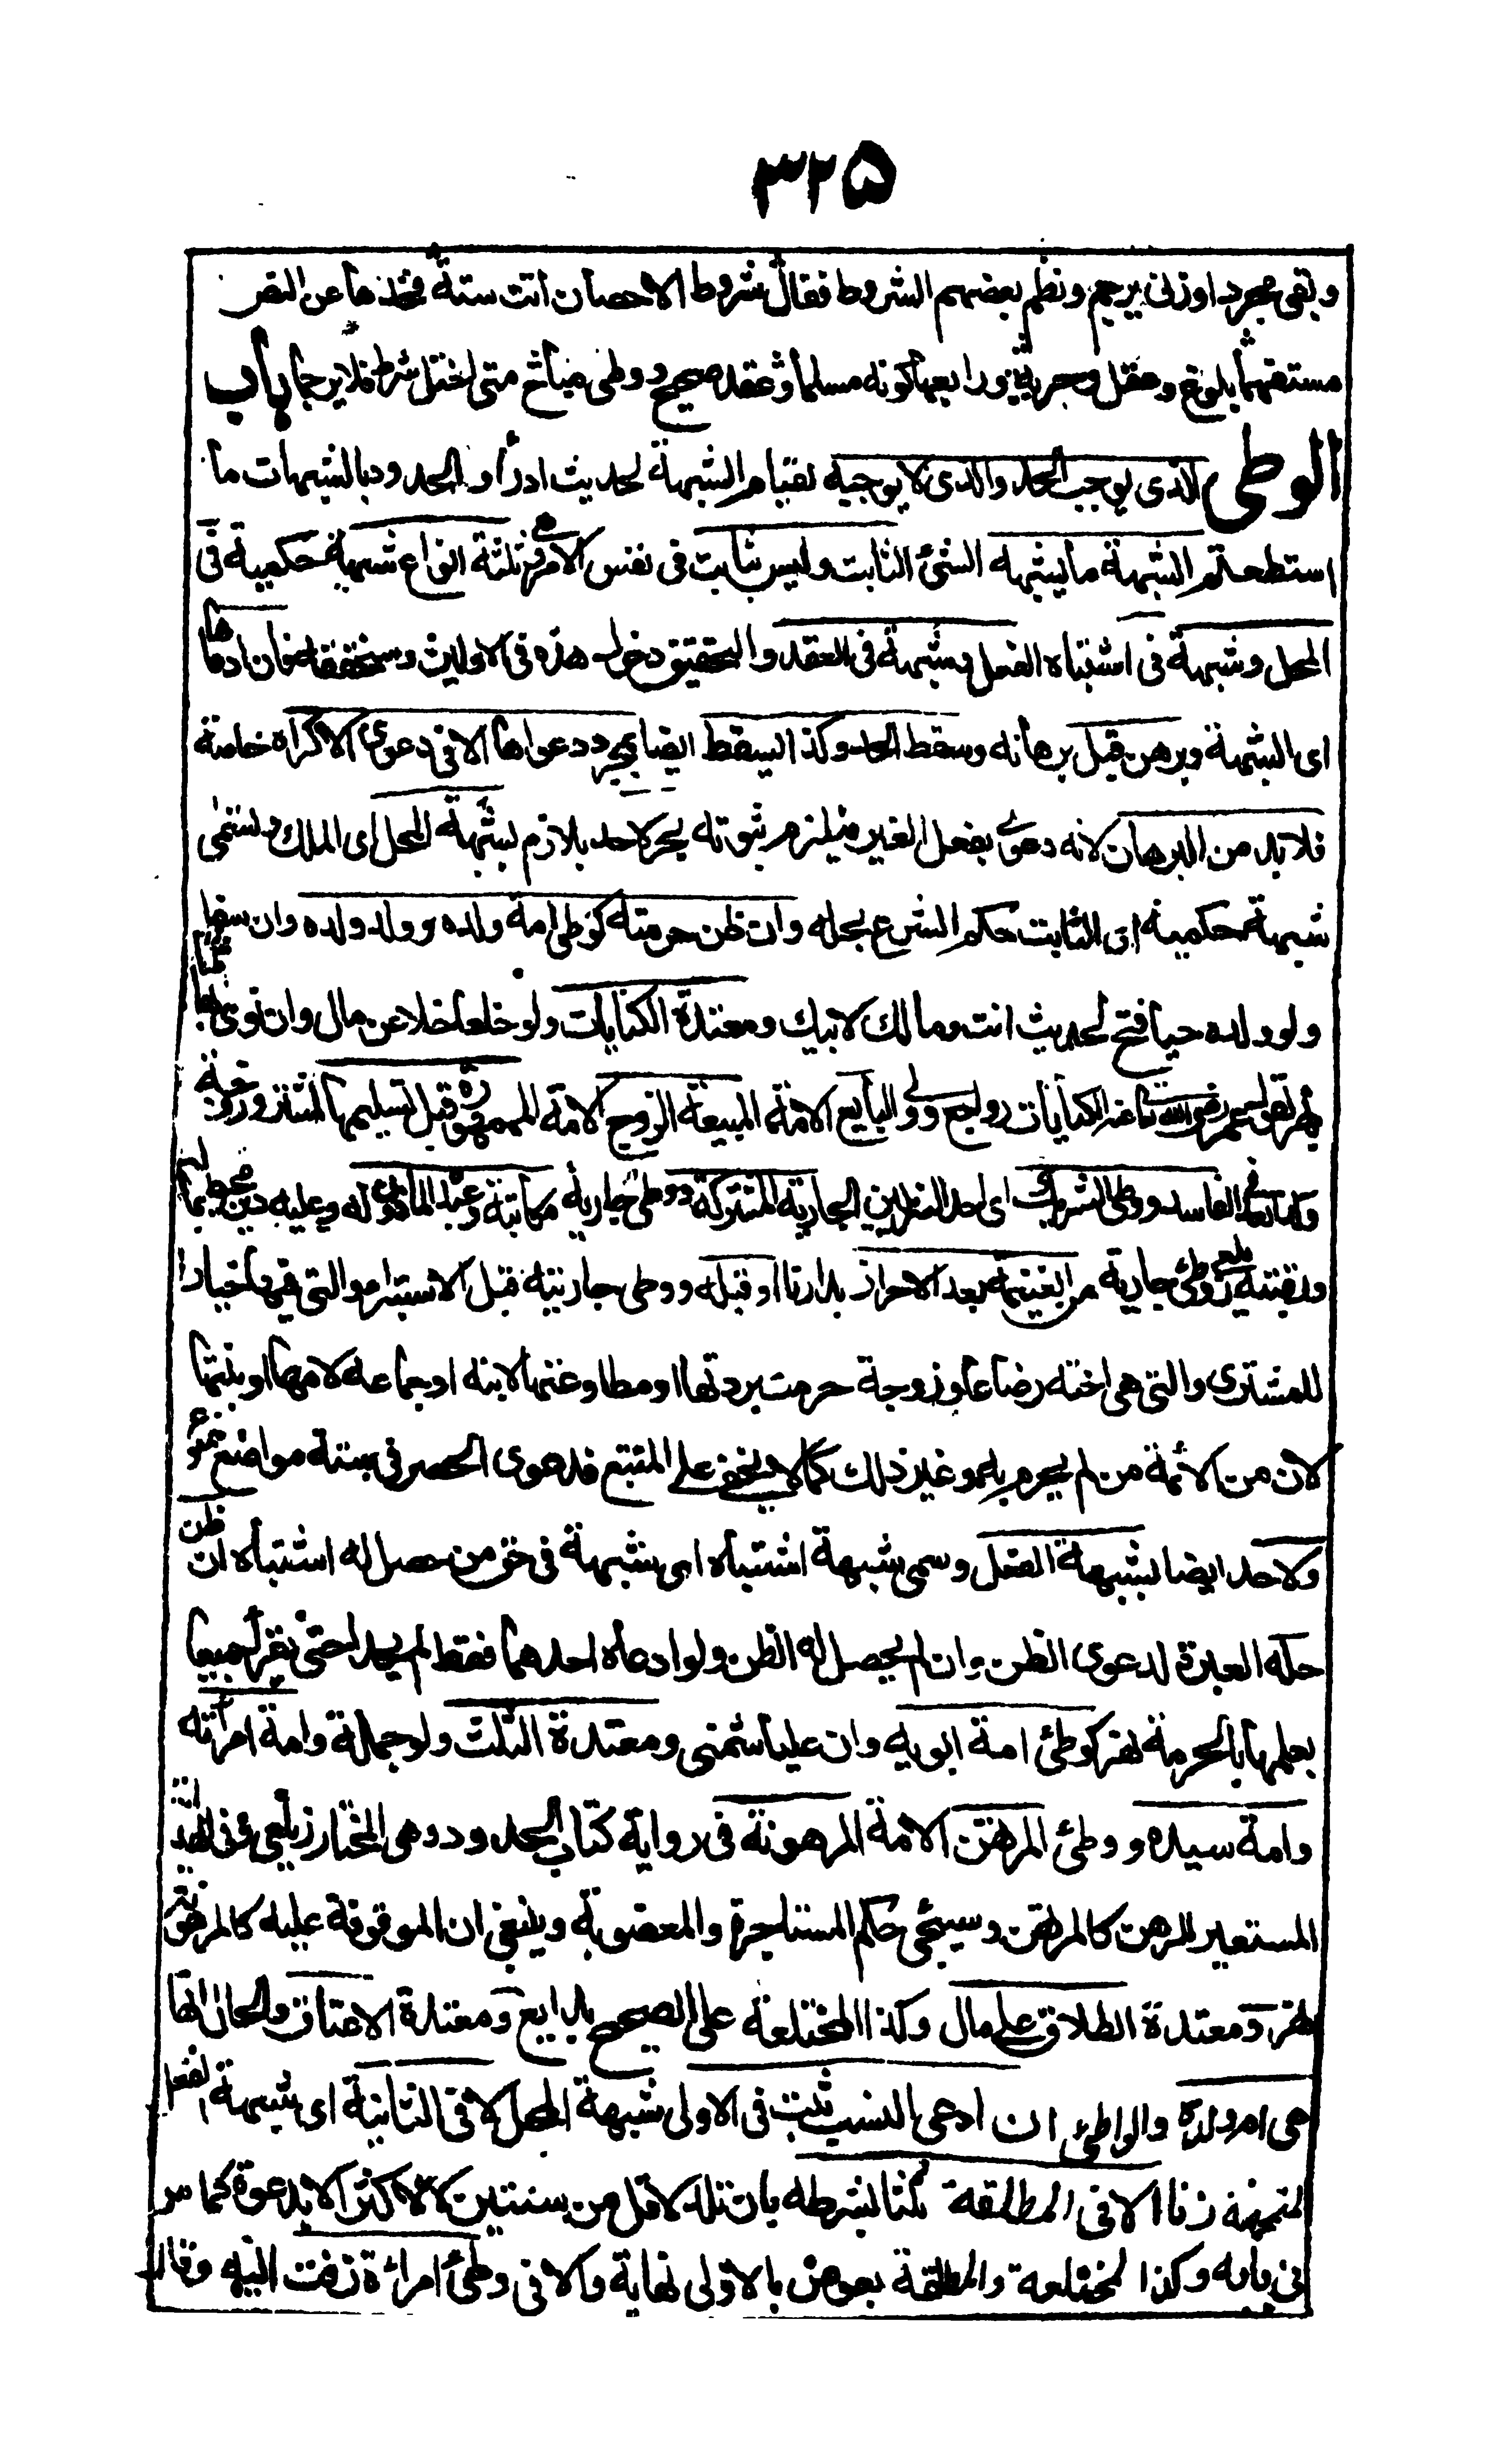 ۳۲۵
وبقى مجردا وزنى يرجم ونظم بعضهم الشروط فقال شروط الاحصان اتت ستة فخذها عن النص
مستفهما بلوغ وعقل وحرية ورابعها كونه مسلما وعقد صحيح ووطى مباح متى اختل شرط فلا يرجما باب
الوطى الذى يوجب الحد والذى لا يوجبه لقيام الشبهة لحديث ادرأوا الحدود بالشبهات ما
استطعتم الشبهة ما يشبه الشئ الثابت وليس بثابت فى نفس الامر ثلثة انواع شبهة حكمية فى
المحل وشبهة فى اشتباه الفعل وشبهة فى العقد والتحقيق دخول هذه فى الاوليين وسنحققه فان ادعاها
اى الشبهة وبرهن قبل برهانه وسقط الحد وكذا يسقط ايضا بمجرد دعواها الا فى دعوى الاكراه خاصة
فلا بد من البرهان لانه دعوى بفعل الغير فيلزم ثبوته بحر لا حد بلازم بشبهة المحل اى الملك وتسمى
شبهة حكمية اى الثابت حكم الشرع بحله وان ظن حرمته كوطى امة ولده وولد ولده وان سفل
ولو ولده حيا فتح لحديث انت ومالك لابيك ومعتدة الكنايات ولو خلعا خلا عن مال وان نوى بها ثلثا
نهر لقول عمر رضى الله تعالى عنه الكنايات رواجع ووطى البايع الامة المبيعة والزوج الامة الممهورة قبل تسليمها لمشتر وزوجة
وكذا بعده فى الفاسد ووطى الشريك اى احد الشريكين الجارية المشتركة ووطى جارية مكاتبه وعبده الماذون له وعليه دين محيط بماله
ورقبته زيلعى ووطئ جارية من الغنيمة بعد الاحراز بدارنا او قبله ووطى جاريته قبل الاستبراء والتى فيها خيار
للمشترى والتى هى اخته رضاعا وزوجة حرمت بردتها او مطاوعتها لابنه او جماعه لامها او بنتها
لان من الائمة من لم يحرم به وغير ذلك كما لا يخفى على المتتبع فدعوى الحصر فى ستة مواضع ممنوع
ولا حد ايضا بشبهة الفعل وسمى شبهة اشتباه اى شبهة فى حق من حصل له اشتباه ان ظن
حله العبرة لدعوى الظن وان لم يحصل له الظن ولو ادعاه احدهما فقط لم يحدا حتى يقرا جميعا
بعلمهما بالحرمة نهر كوطئ امة ابويه وان عليا شمنى ومعتدة الثلث ولو جملة وامة امرأته
وامة سيده ووطئ المرتهن الامة المرهونة فى رواية كتاب الحدود وهى المختار زيلعى وفى الهداية
المستعير للرهن كالمرتهن وسيجئ حكم المستاجرة والمغصوبة وينبغى ان الموقوفة عليه كالمرهونة
نهر ومعتدة الطلاق على مال وكذا المختلعة على الصحيح بدايع ومعتدة الاعتاق والحال انها
هى ام ولده والواطئ ان ادعى النسب ثبت فى الاولى شبهة المحل لا فى الثانية اى شبهة الفعل
لتمحضه زنا الا فى المطلقة ثلثا بشرطه بان تلد لاقل من سنتين لا لاكثر الا بدعوة كما مر
فى بابه وكذا المختلعة والمطلقة بعوض بالاولى نهاية والا فى وطئ امرأة زفت اليه وقال